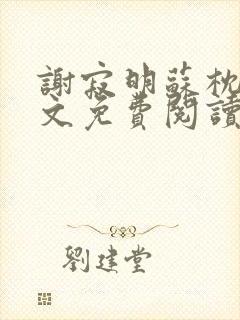 謝寂明蘇枕
文免費閱讀
劉建堂